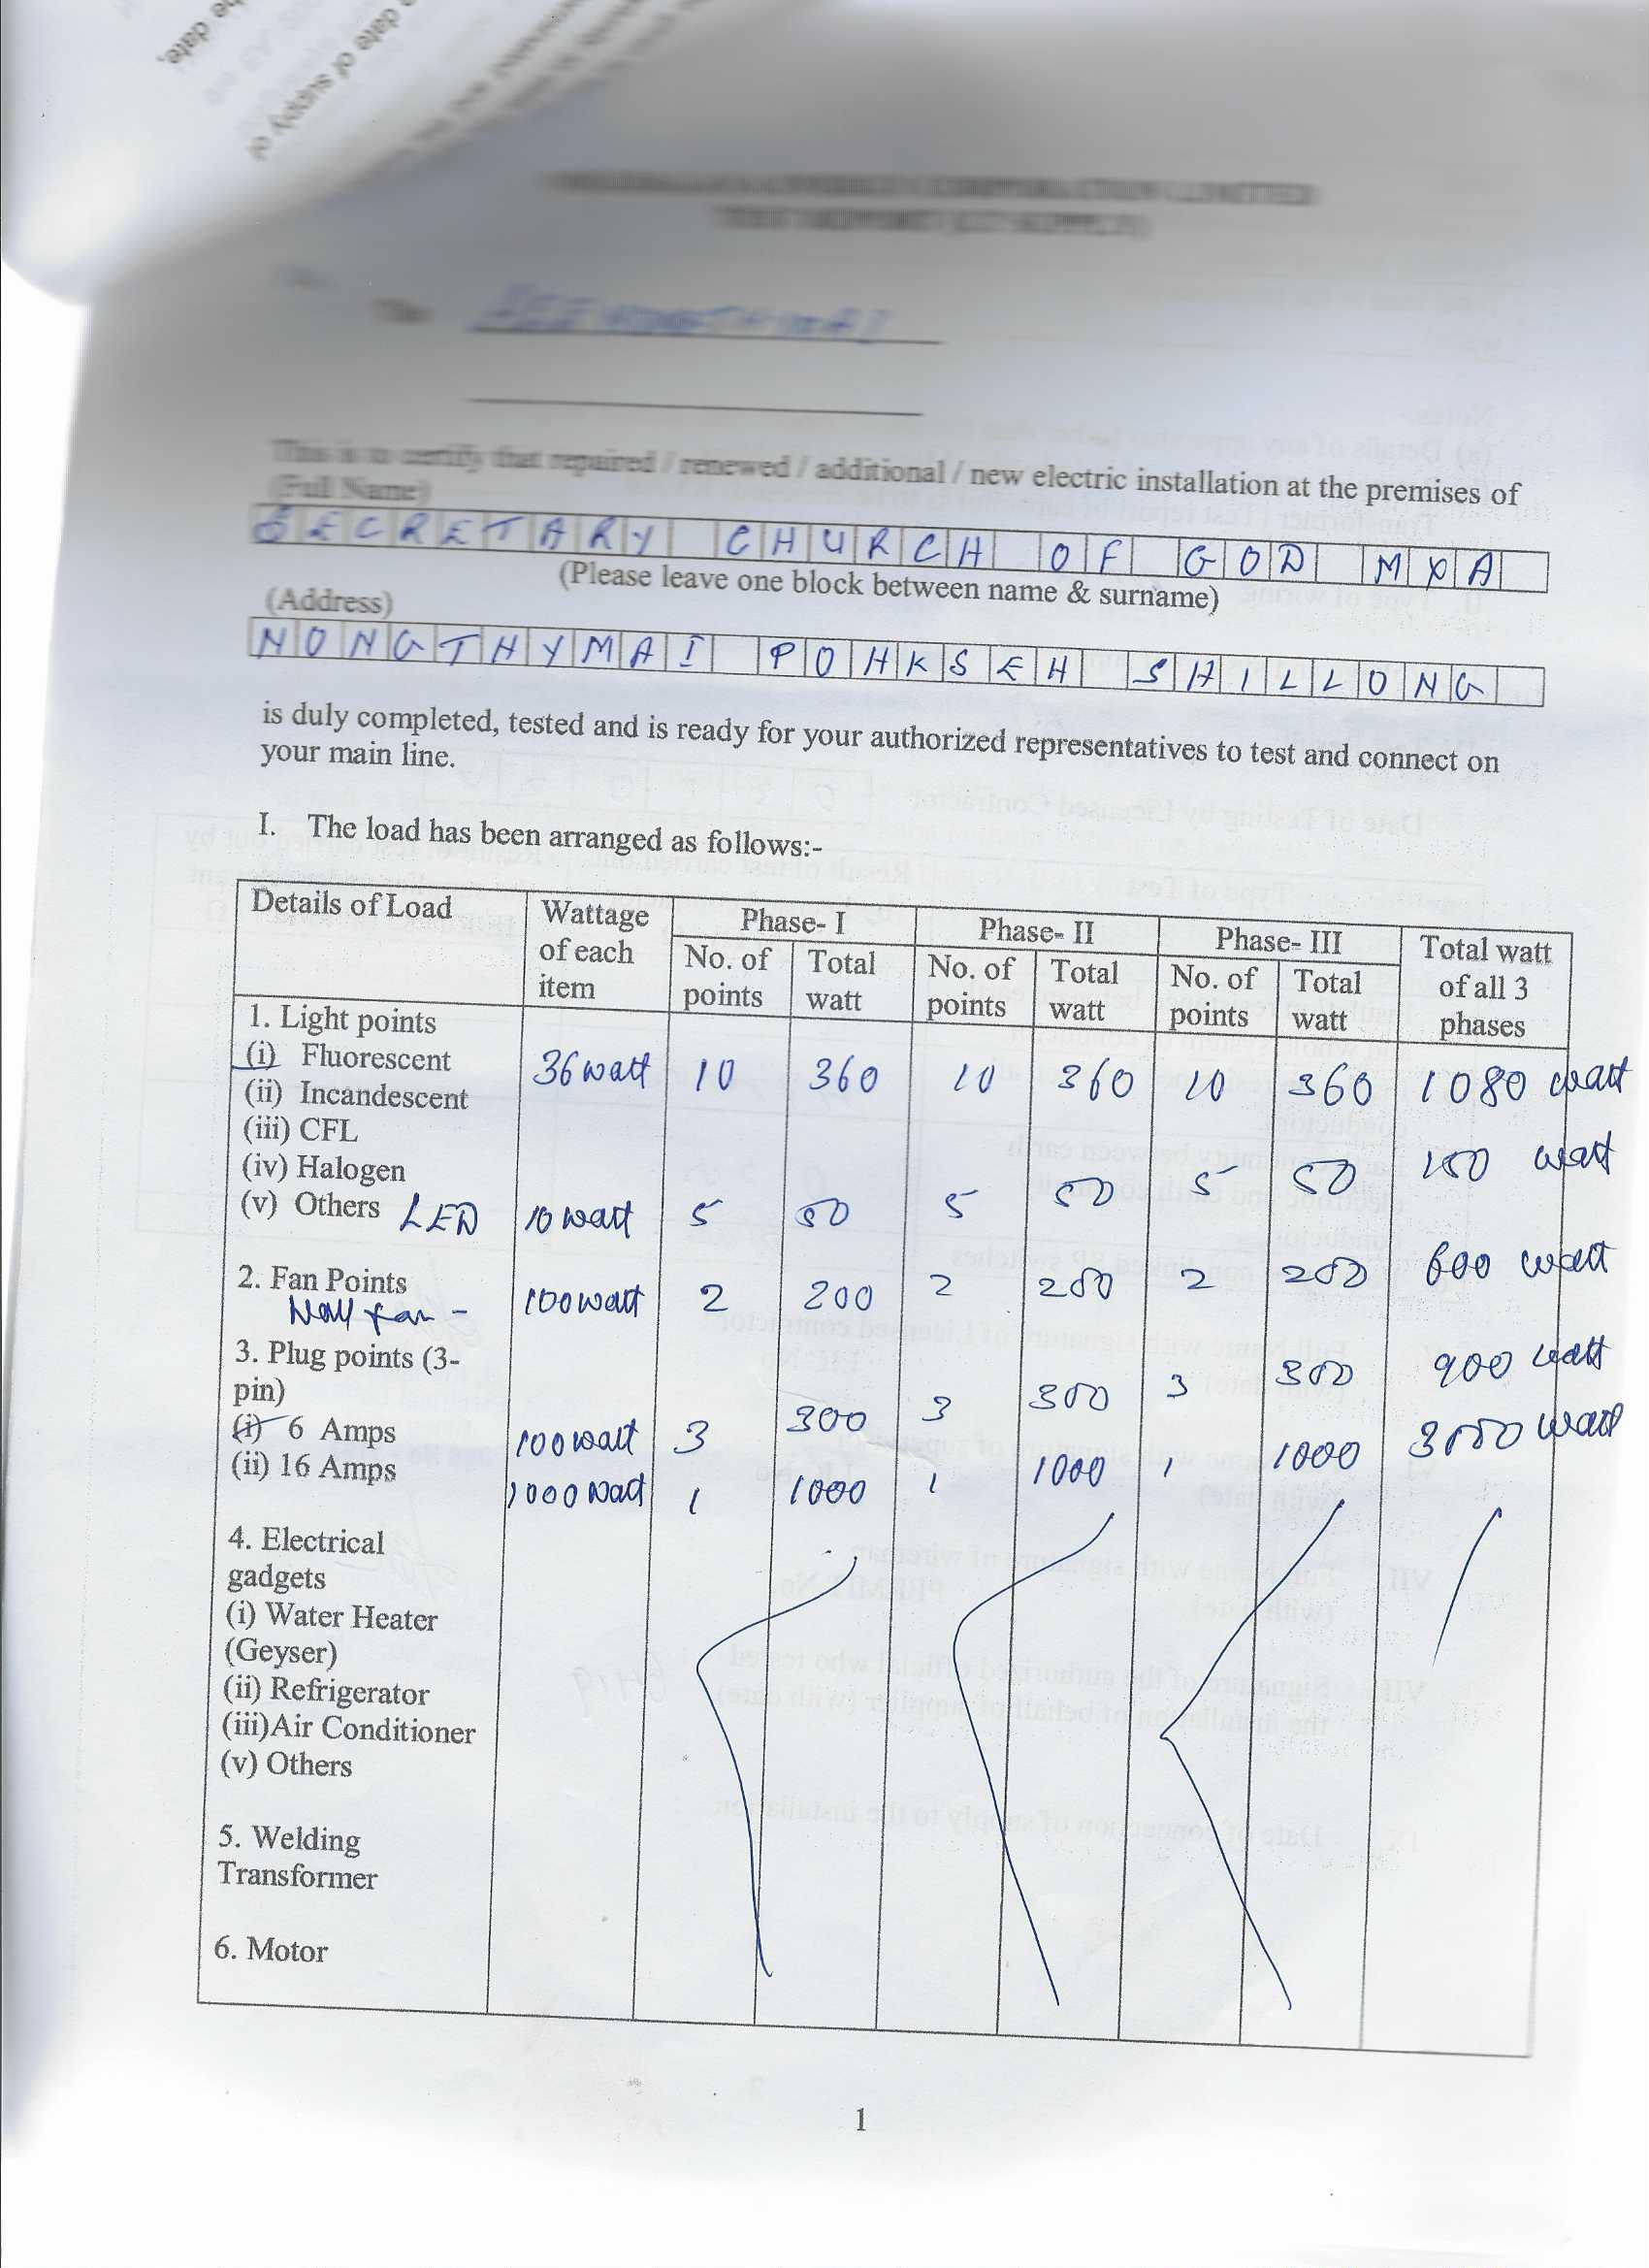 the date,
date of supply of
TEST REPORT (LT SUPPLY)
This is to certify that repaired / renewed / additional / new electric installation at the premises of
(Full Name)
SECRETARY CHURCH OF GOD MXA
(Please leave one block between name & surname)
(Address)
NONGTHYMAI POHKSEH SHILLONG
is duly completed, tested and is ready for your authorized representatives to test and connect on
your main line.
I. The load has been arranged as follows:-
Details of Load Wattage of each item Phase- I Phase- II Phase- III Total watt of all 3 phases
No. of points Total watt No. of points Total watt No. of points Total watt
1. Light points
(i) Fluorescent 36 watt 10 360 10 360 10 360 1080 watt
(ii) Incandescent
(iii) CFL
(iv) Halogen
(v) Others LED 10 watt 5 50 5 50 5 50 150 watt
2. Fan Points 100 watt 2 200 2 200 2 200 600 watt
Wall fan -
3. Plug points (3-
pin)
(i) 6 Amps 100 watt 3 300 3 300 3 300 900 watt
(ii) 16 Amps 1000 watt 1 1000 1 1000 1 1000 3000 watt
4. Electrical
gadgets
(i) Water Heater
(Geyser)
(ii) Refrigerator
(iii)Air Conditioner
(v) Others
5. Welding
Transformer
6. Motor
1